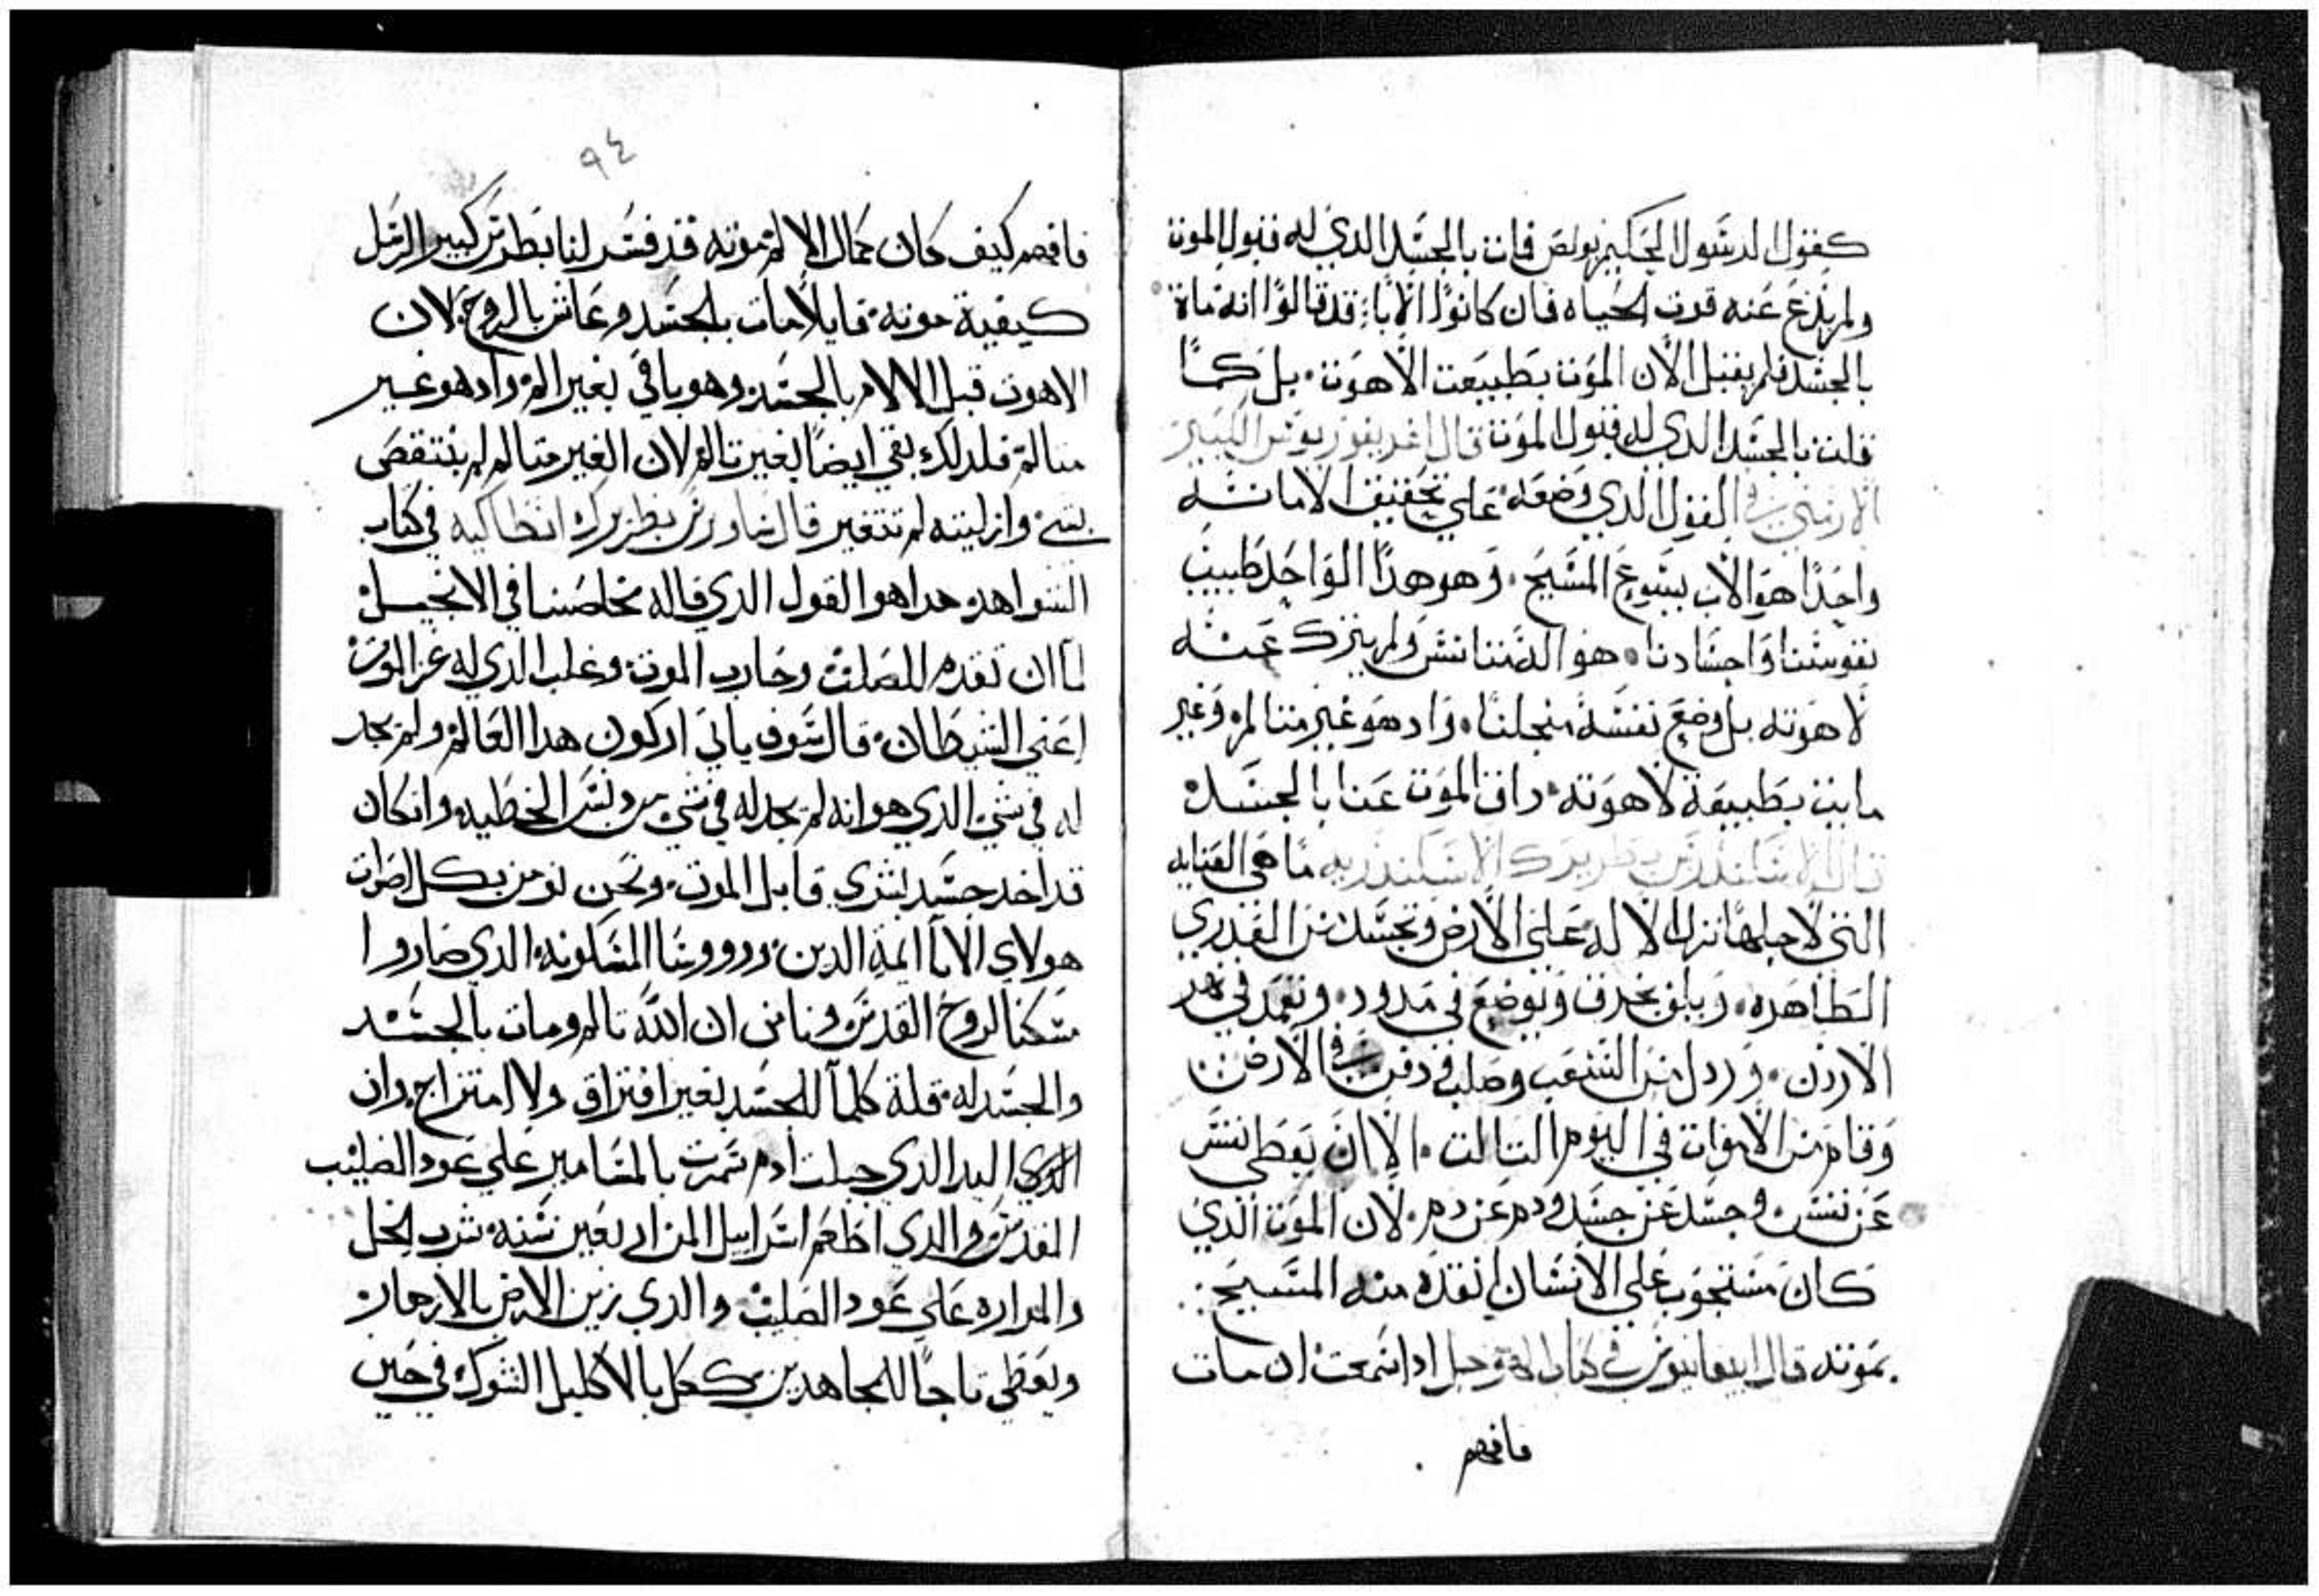 كقول الرسول الحكيم بولص فان بالجسد الدي له قبول الموت
ولم ينزع عنه قوت الحياه فان كانوا الاباء قد قالوا انه مات
بالجسد فلم يقبل الان الموت بطبيعت الاهوت بل كما
قلت بالجسد الدي له قبول الموت قال اغريغوريوس الكبير
الارمني في القول الدي وضعه علي تحقيق الامانه
واحدا هو الاب يسوع المسيح وهو هدا الواحد طبيب
نفوسنا واجسادنا هو الدي تانس ولم يترك عنه
لاهوته بل وضع نفسه منجلنا واد هو غير متالم وغير
مايت بطبيعة لاهوته داق الموت عنا بالجسد
قال الاسكندرس بطريرك الاسكندريه ما هي العنايه
التي لاجلها نزل الاله علي الارض وتجسد من العدري
الطاهره ويلف بخرق ويوضع في مدود وتعمد في نهر
الاردن وردل من الشعب وصلب ودفن في الارض
وقام من الاموات في اليوم التالت الا ان يعطي نفس
عن نفس وجسد عن جسد ودم عن دم لان الموت الدي
كان مستجوب علي الانسان انقده منه المسيح
بموته قال ابيفانيوس في كتاب ادا سمعت ان مات
فافهم
٩٤
فافهم كيف كان حمال الالم موته قد فسر لنا بطرس كبير الرسل
كيفية موته قايلا مات بالجسد وعاش بالروح لان
الاهوت قبل الالام بالجسد وهو باقي بغير الم واد هو غير
متالم فلدلك بقي ايضا بغير تالم لان الغير متالم لم ينتقص
بشي وازليته لم تتغير قال ساورس بطريرك انطاكيه في كتاب
الشواهد هدا هو القول الدي قاله مخلصنا في الانجيل
لما ان تقدم للصلب وحارب الموت وغلب الدي له عز الموت
اعني الشيطان قال سوف ياتي اركون هدا العالم ولم يجد
له في شي الدي هو انه لم يجد له في شي من دنس الخطيه وان كان
قد اخد جسد بشري قابل الموت ونحن نومن بكل اصوات
هولاي الابا ايمة الدين وروسا المسكونه الدي صاروا
سكنا لروح القدس ونامن ان الله تالم ومات بالجسد
والجسد له قلة كلما للجسد بغير افتراق ولا امتزاج وان
الدي اليد الدي جبلت ادم سمرت بالمسامير علي عود الصليب
المقدس والدي اطعم اسراييل المن اربعين سنه شرب الخل
والمراره علي عود الصليب والدي زين الارض بالازهار
ويعطي تاجا للمجاهدين كلل بالاكليل الشوك في حين